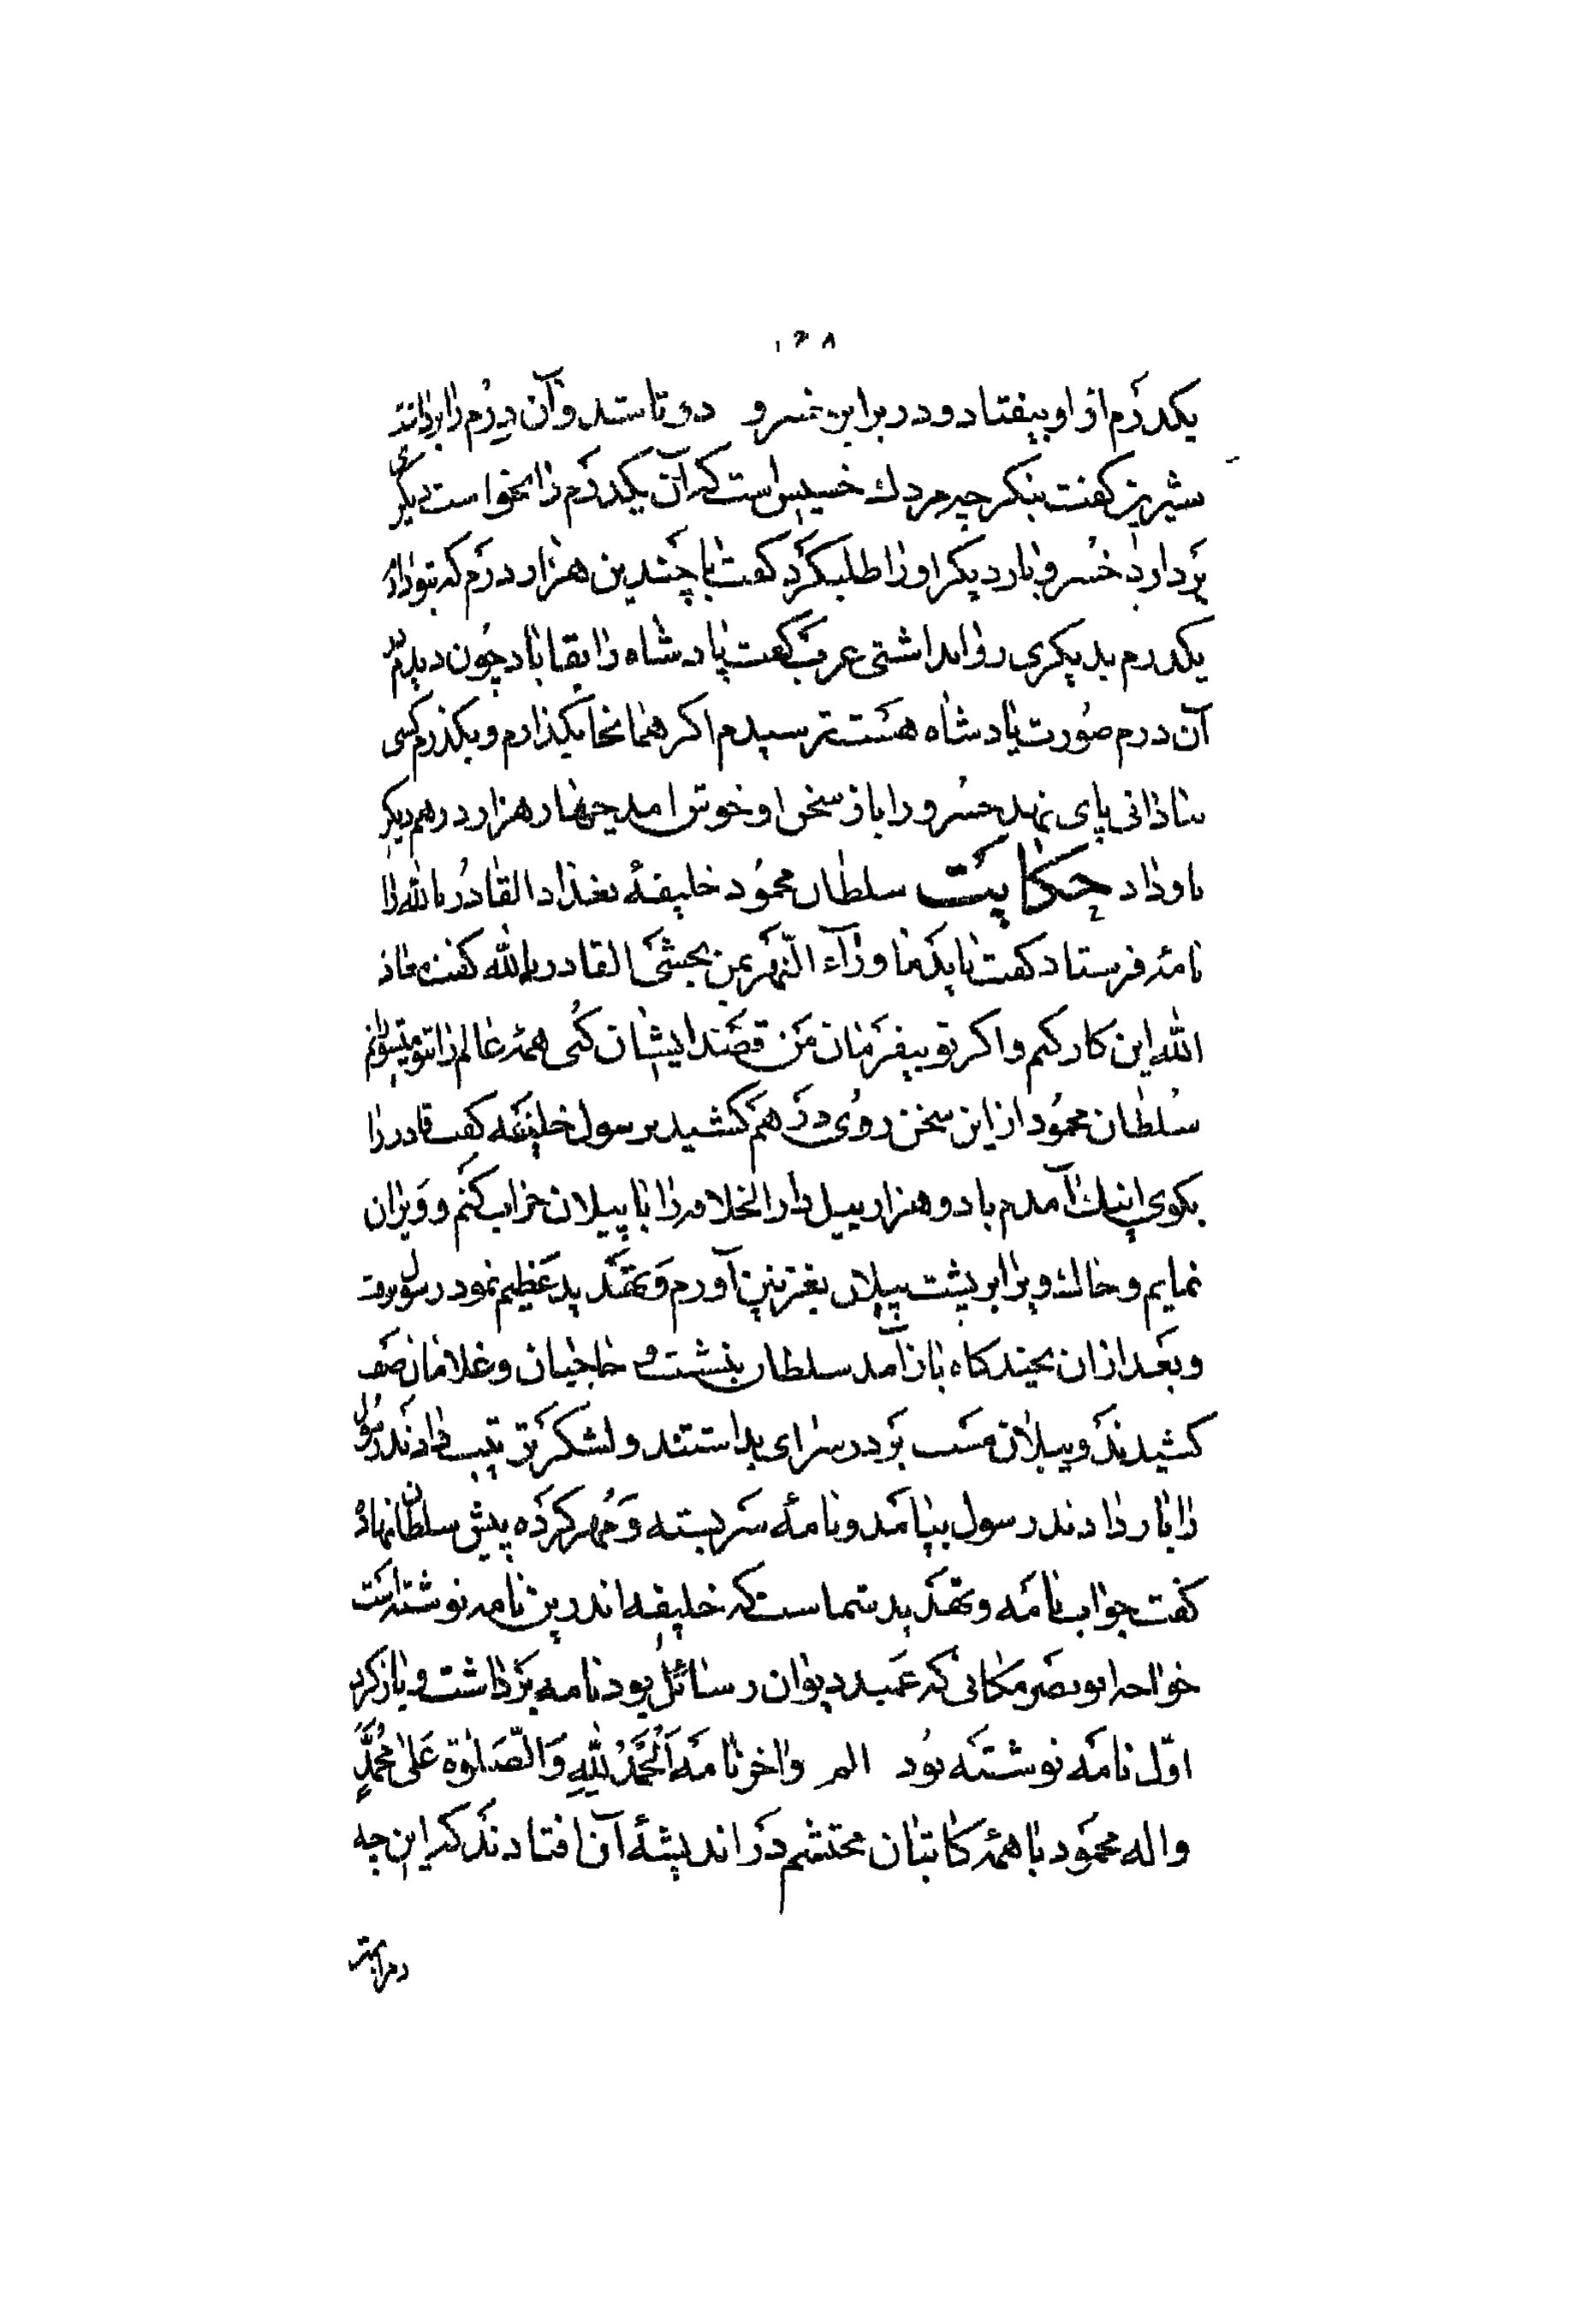 ۱۲۸
یکدرم از او بیفتاد و در برابر خسرو دو تا شد و آن درم را برداشت
شیرین کفت بنکر چه مردك خسیس است که آن یکدرم را نخواست دیکری
بردارد خسرو بار دیکر او را طلب کرد کفت با چندین هزار درم که بتو داد
یکدرم بدیکری روا نداشتی عرب کفت پادشاه را بقا باد چون دیدم بر
آن درم صورت پادشاه هست ترسیدم اکر همانجا بکذارم و بکذرم کسی
بنادانی پای نهد خسرو را باز سخن او خوش امد چهار هزار درهم دیکر
باو داد حکایت سلطان محمود خلیفهٔ بغداد القادر بالله را
نامهٔ فرستاد کفت باید ما وراء النهر بمن بخشی القادر بالله کفت معاذ
الله این کار کنم و اکر تو بیفرمان من قصد ایشان کنی همهٔ عالم را بتو بشورانم
سلطان محمود از این سخن روی در هم کشید برسول خلیفه کفت قادر را
بکوی اینك آمدم با دو هزار پیل دار الخلافه را با پیلان خراب کنم و ویران
نمایم و خاك او را بر پشت پیلان بغزنین آورم و تهدید عظیم نمود رسول برفت
و بعد از ان بچند کاه باز آمد سلطان بنشست و حاجبان و غلامان صف
کشیدند و پیلان مست بر در سرای بداشتند و لشکر ترتیب دادند رسول
را بار دادند رسول بیامد و نامهٔ سر بسته و مهر کرده پیش سلطان نهاد
کفت جواب نامه و تهدید شماست که خلیفه اندرین نامه نوشته است
خواجه ابو نصر مکانی که عمید دیوان رسائل بود نامه برداشت و باز کرد
اول نامه نوشته بود الم و اخر نامه الحمد لله و الصلوة علی محمد
و اله محمود با همهٔ کاتبان محتشم در اندیشهٔ آن افتادند که این چه